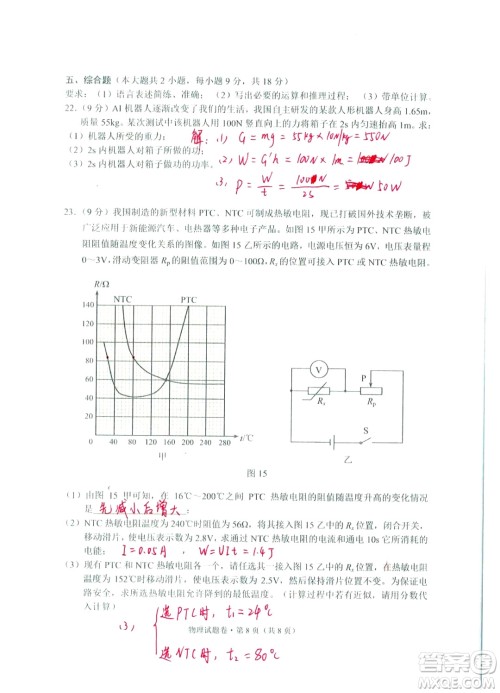 五、综合题（本大题共2小题，每小题9分，共18分）
要求：（1）语言表述简练、流畅；（2）写出必要的运算和推理过程；（3）带单位计算。
22.（9分）AI机器人逐渐改变了我们的生活，我国自主研发的某款人形机器人身高1.65m、
质量55kg。某次测试中该机器人用100N竖直向上的力将箱子在2s内匀速抬高1m。求：
（1）机器人所受的重力；
解：(1) G = mg = 55kg×10N/kg = 550N
（2）2s内机器人对箱子做的功；
(2) W = G'h = 100N×1m = 100J
（3）2s内机器人对箱子做功的功率。
(3) P = W/t = 100J/2s = 50W
23.（9分）我国制造的新型材料PTC、NTC可制成热敏电阻，现已打破国外技术垄断，被
广泛应用于新能源汽车、电热器等多种电子产品。如图15甲所示为PTC、NTC热敏电
阻阻值随温度变化关系的图像。如图15乙所示的电路，电源电压恒为6V，电压表量程
0～3V，滑动变阻器Rp的阻值范围为0～100Ω，Rt的位置可接入PTC或NTC热敏电阻。
R/Ω
NTC
PTC
140
120
100
80
60
40
20
0
40 80 120 160 200 240 280
t/℃
甲
V
Rt
P
Rp
S
乙
图15
（1）由图15甲可知，在16℃～200℃范围内PTC热敏电阻的阻值随温度升高的变化情况
是 先减小后增大；
（2）NTC热敏电阻温度为240℃时阻值为56Ω，将其接入图15乙中的Rt位置，闭合开关，
移动滑片，使电压表示数为2.8V，求干路电流和通电10s它消耗的
电能；
I = 0.05A W = UIt = 1.4J
（3）现有PTC和NTC热敏电阻各一个，请任选其一接入Rt位置，闭合开关，移动滑片使
温度为152℃时示数为2.5V，然后保持滑片位置不变，求能使电路安全工作的
热敏电阻允许降到的最低温度。（计算过程
代入计算！）
(3) 选PTC时，t₁=24℃
选NTC时，t₂=80℃
物理试题卷·第8页（共8页）